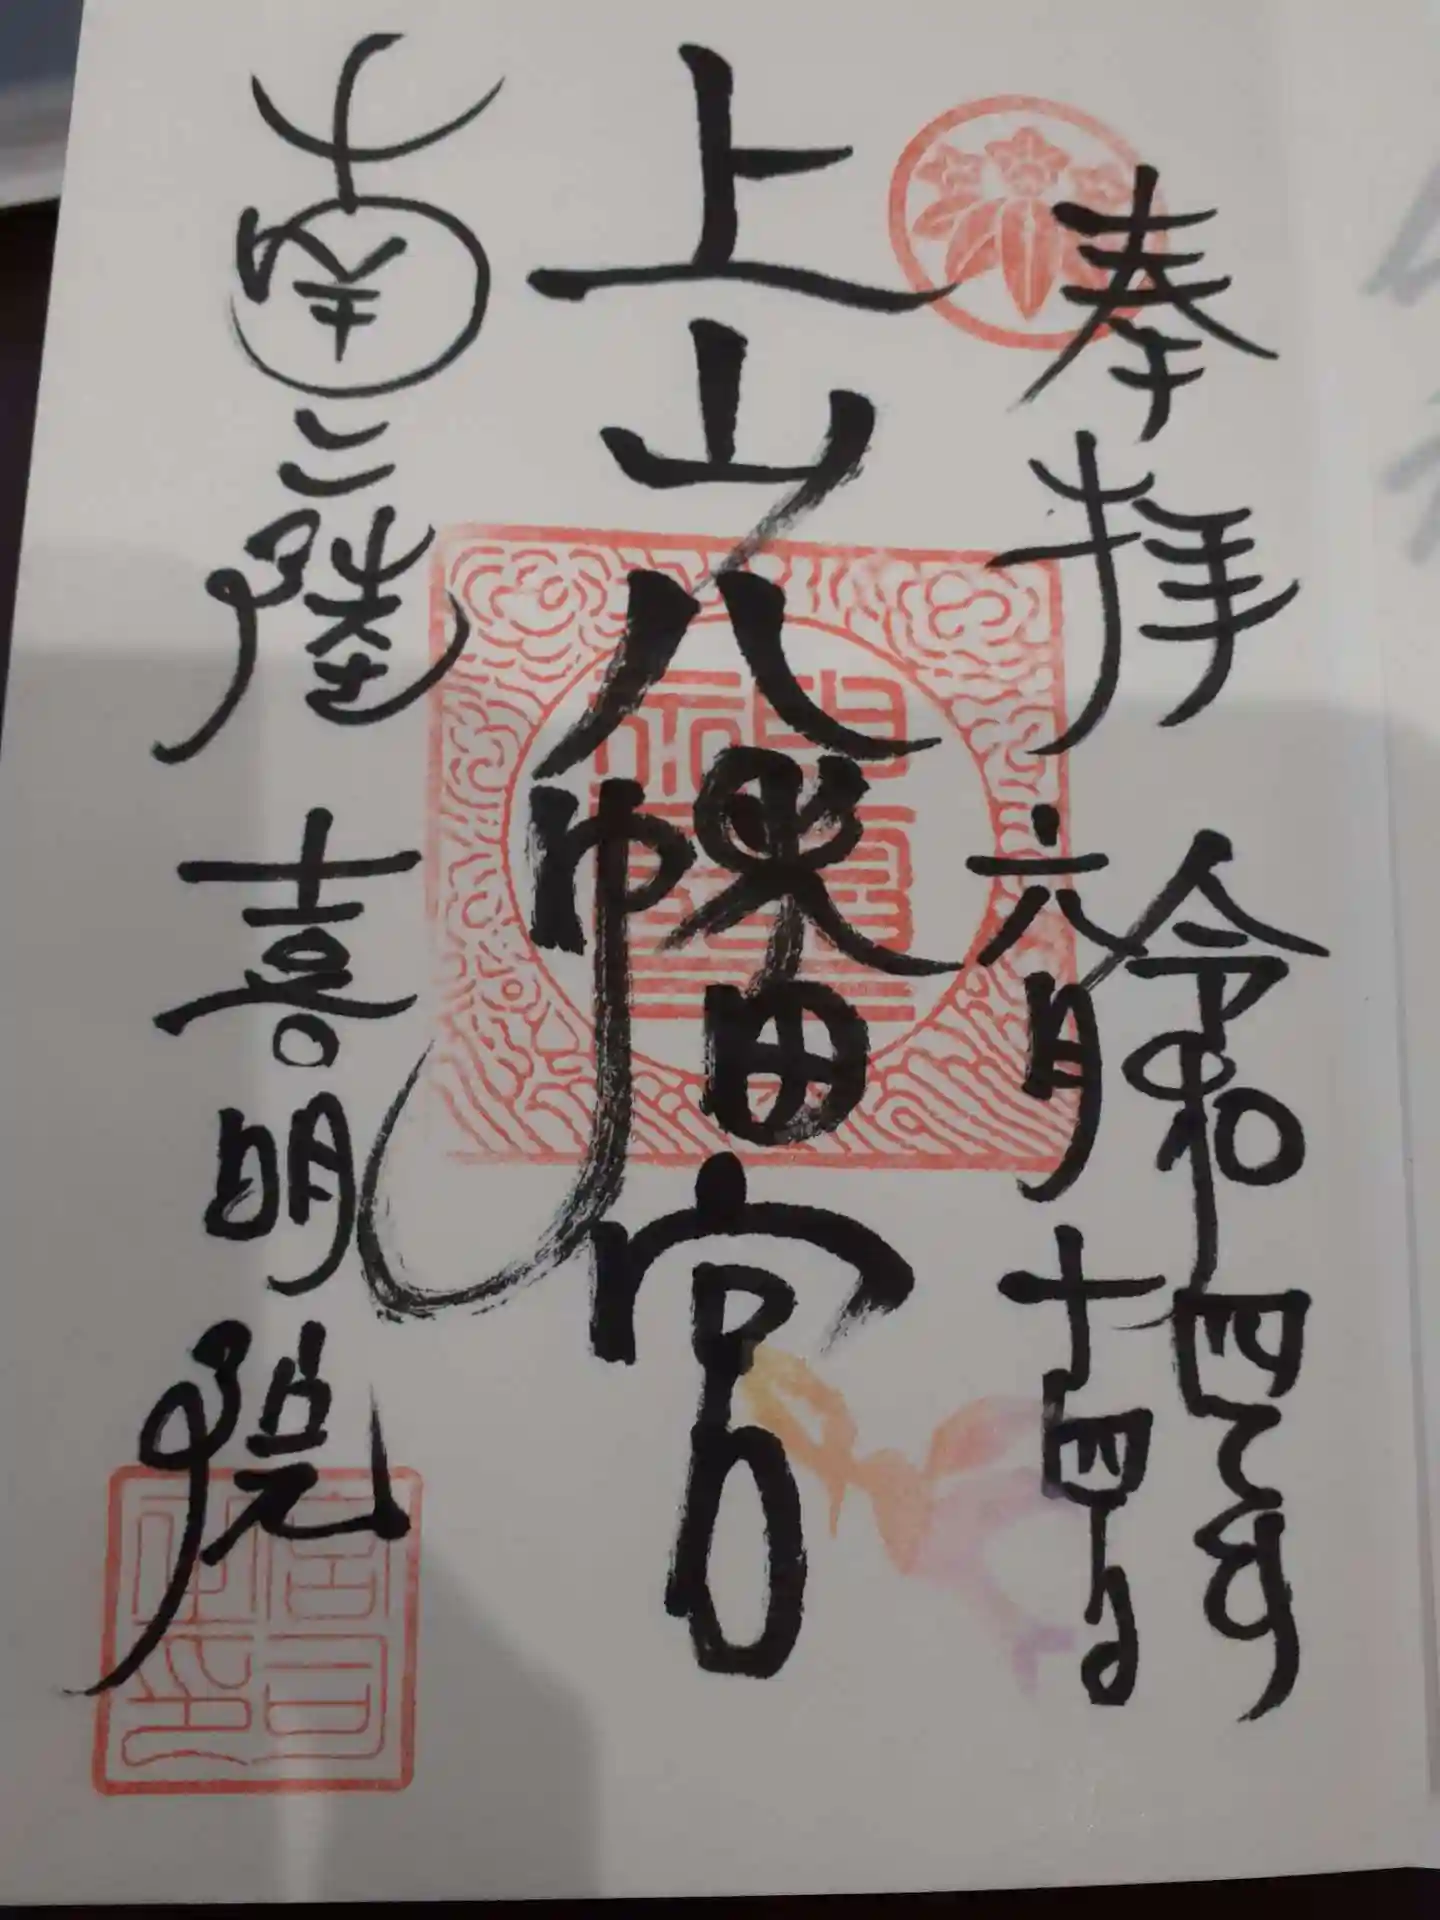 奉拝
令和四年
六月十四日
上山八幡宮
南三陸
喜明
宮司之印